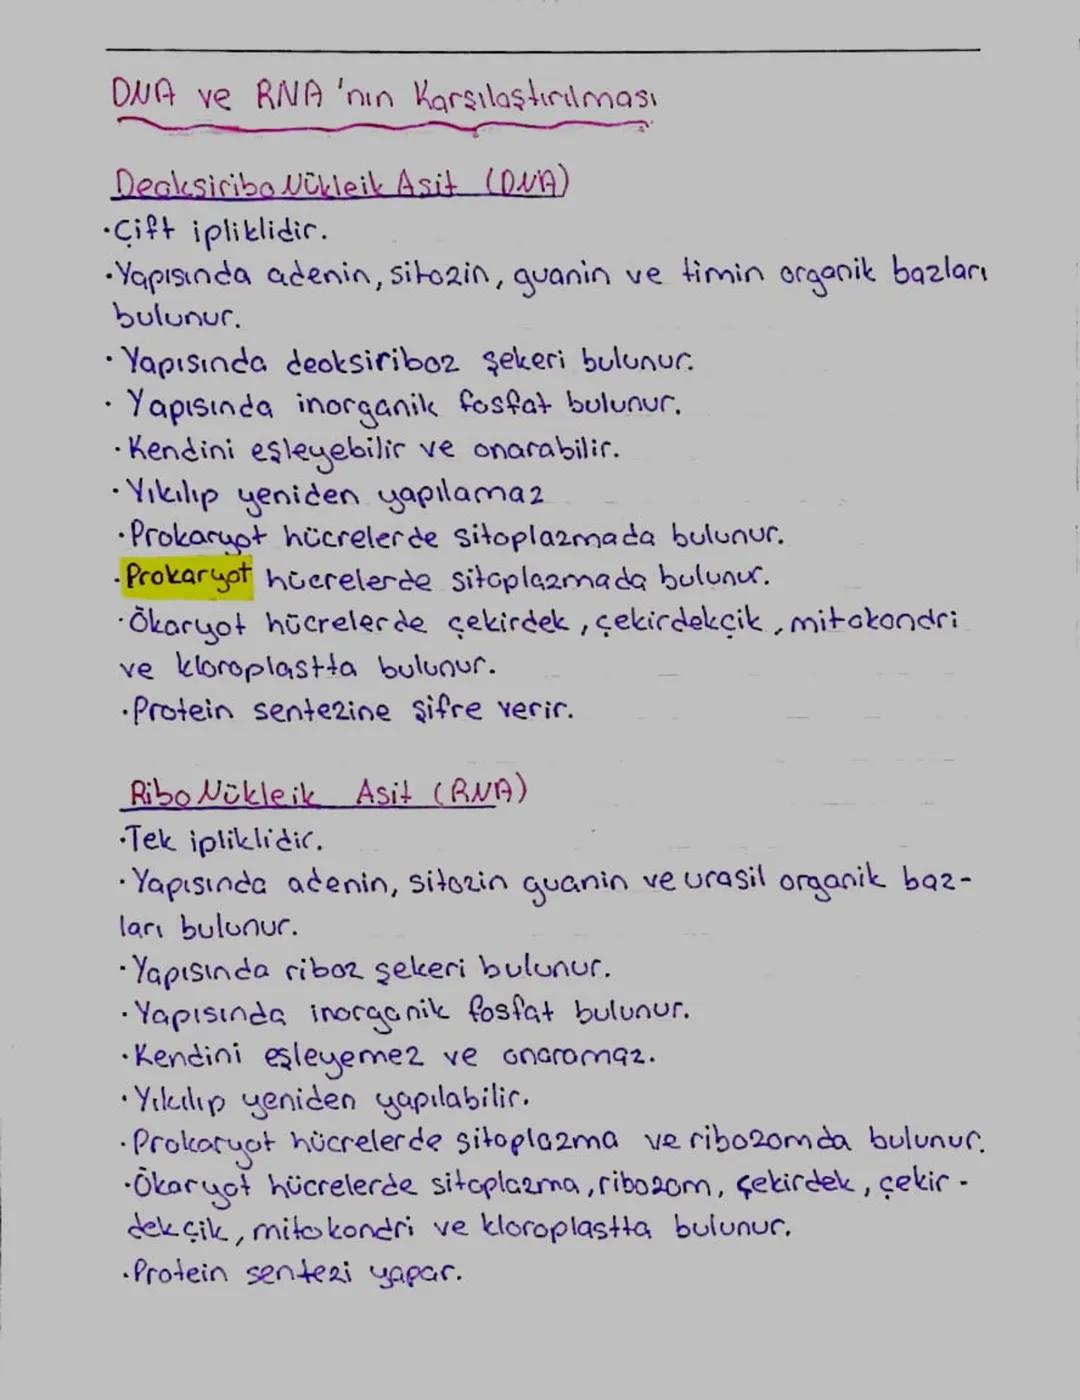 DNA ve RNA'nın Karşılaştırılması
Deoksiribo Nükleik Asit (DNA)
·Çift ipliklidir.
·Yapısında adenin, sitozin, guanin ve timin organik bazları
bulunur.
·Yapısında deoksiriboz şekeri bulunur.
·Yapısında inorganik fosfat bulunur.
·Kendini eşleyebilir ve onarabilir.
·Yıkılıp yeniden yapılamaz
·Prokaryot hücrelerde sitoplazmada bulunur.
·Prokaryot hücrelerde sitoplazmada bulunur.
·Ökaryot hücrelerde çekirdek, çekirdekçik, mitokondri
ve kloroplastta bulunur.
·Protein sentezine şifre verir.
Ribo Nükleik Asit (RNA)
·Tek ipliklidir.
·Yapısında adenin, sitozin guanin ve urasil organik baz-
ları bulunur.
·Yapısında riboz şekeri bulunur.
·Yapısında inorganik fosfat bulunur.
·Kendini eşleyemez ve onaramaz.
·Yıkılıp yeniden yapılabilir.
·Prokaryot hücrelerde sitoplazma ve ribozomda bulunur.
·Ökaryot hücrelerde sitoplazma, ribozom, çekirdek, çekir-
dekçik, mitokondri ve kloroplastta bulunur.
·Protein sentezi yapar.